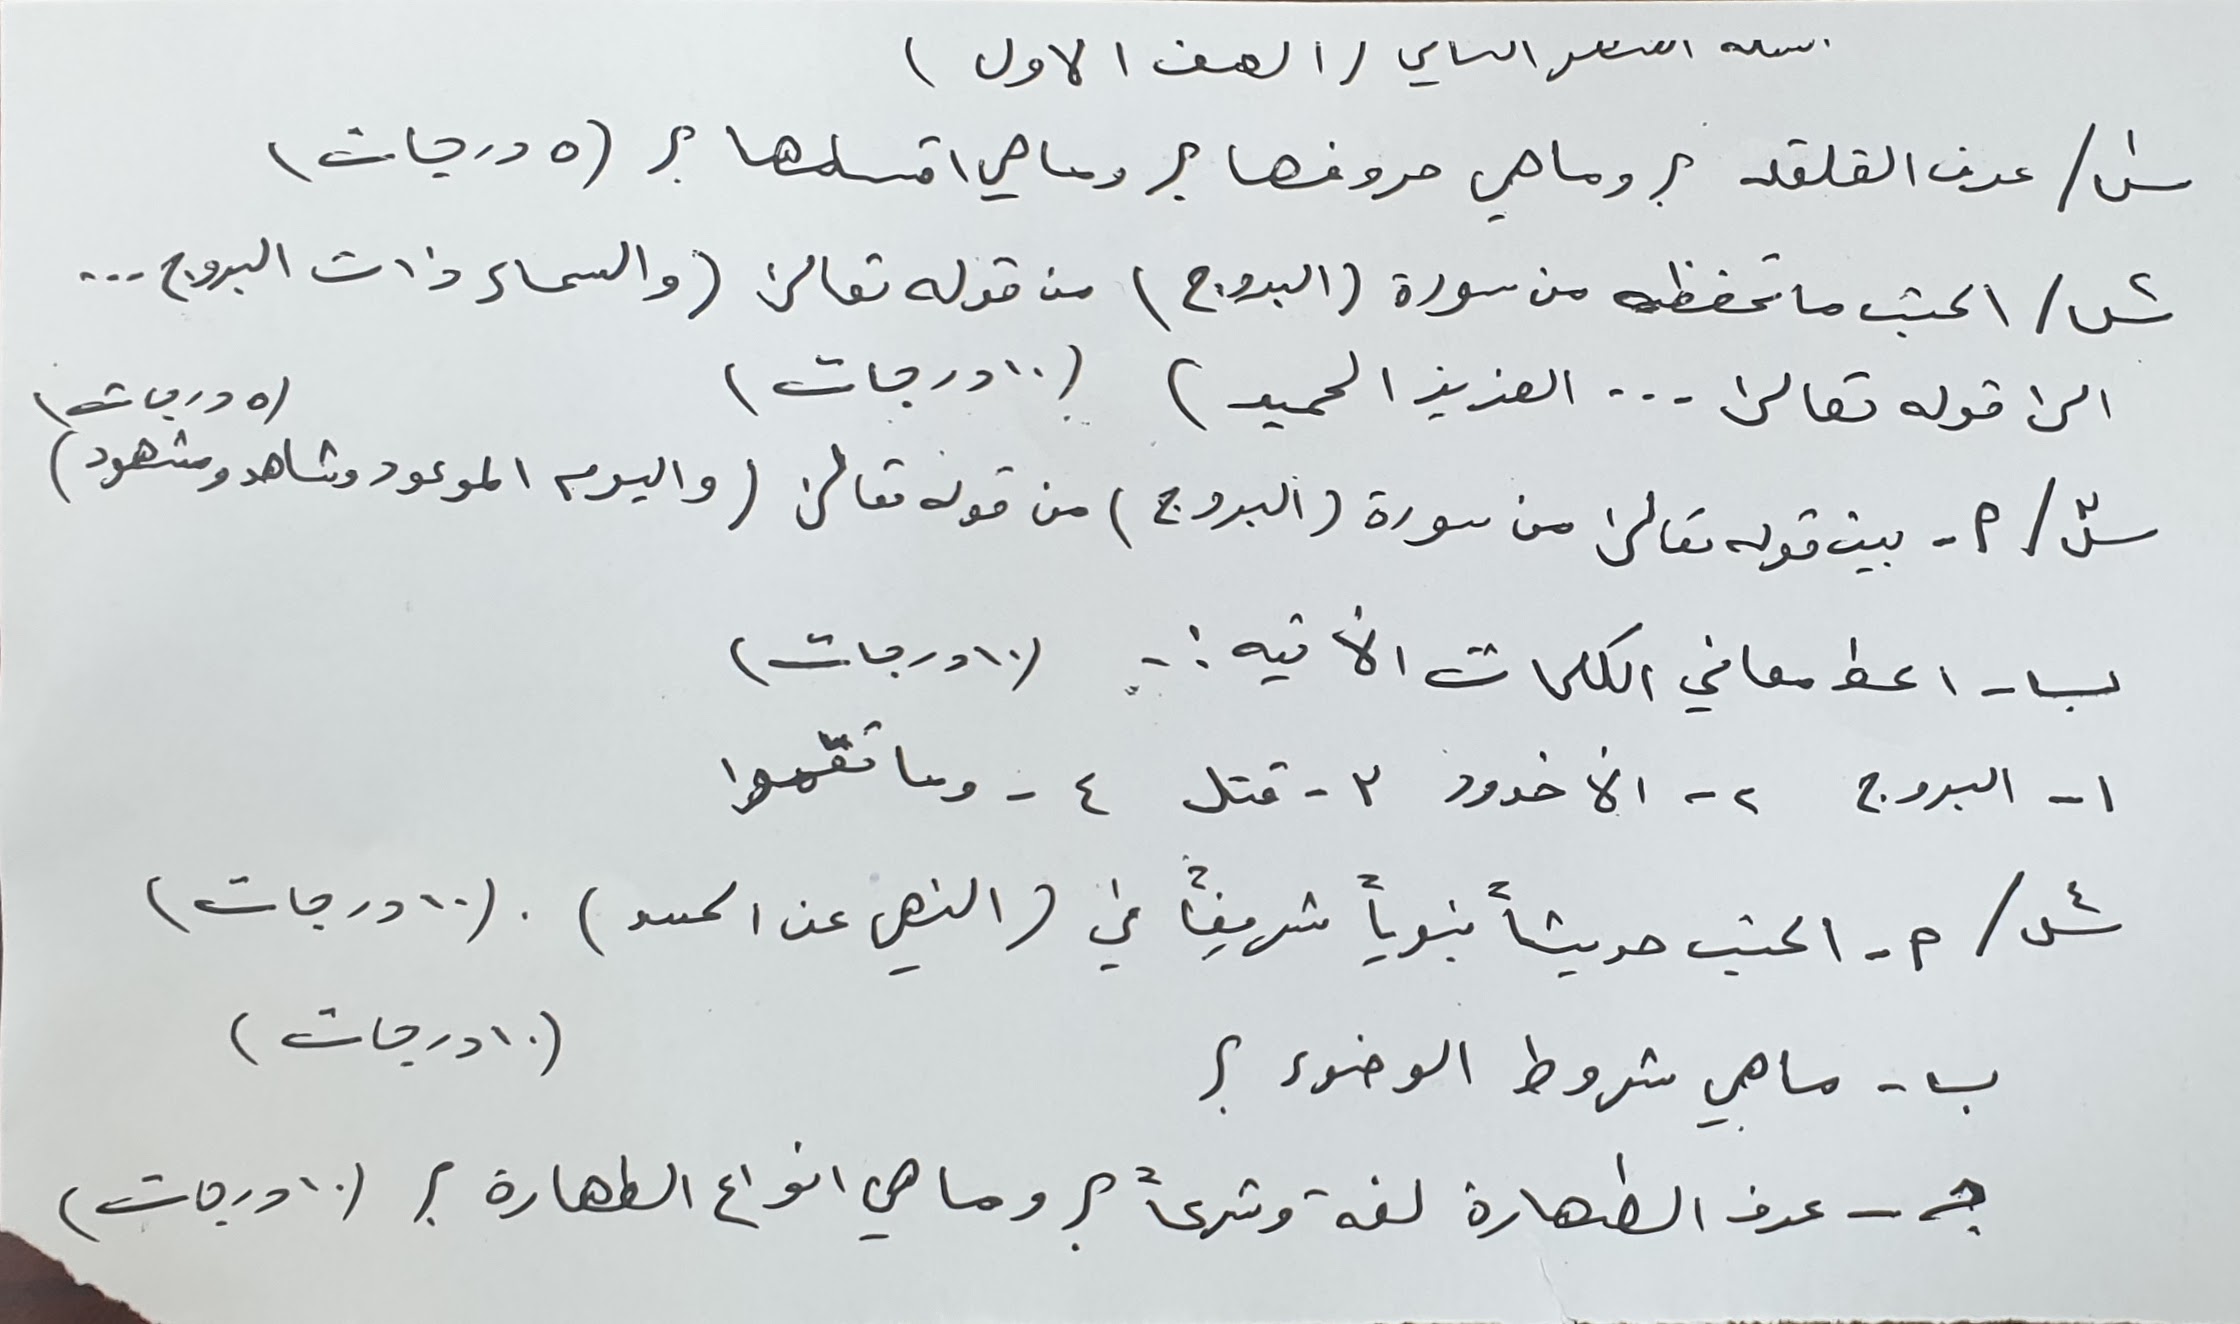 اسئلة الفصل الثاني (الصف الاول)
س١/ عرف القلقله ؟ وماهي حروفها ؟ وماهي اقسامها ؟ (٥ درجات)
س٢/ اكتب ماتحفظه من سورة (البروج) من قوله تعالى (والسماء ذات البروج ...
الى قوله تعالى ... العزيز الحميد) (١٠ درجات)
(٥ درجات)
س٣/ م- بين قوله تعالى من سورة (البروج) من قوله تعالى (واليوم الموعود وشاهد ومشهود)
ب- اعط معاني الكلمات الأتيه :- (١٠ درجات)
١- البروج ٢- الأخدود ٣- قتل ٤- وما نقموا
س٤/ م- اكتب حديثاً نبوياً شريفاً في (النهي عن الحسد). (١٠ درجات)
ب- ماهي شروط الوضوء ؟ (١٠ درجات)
جـ- عرف الطهارة لغة وشرعاً ؟ وماهي انواع الطهارة ؟ (١٠ درجات)